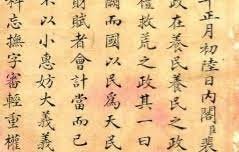 年正月初陸日內閣臣裴
政在養民養民之政
禮救荒之政其一曰
而國以民為天民
財賦者會計當而已
不以小惠妨大義義
科忘撫字審輕重權